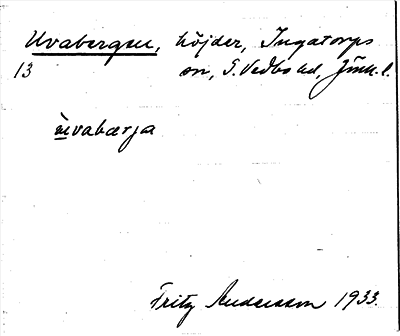 Uvabergen, höjder, Ingatorps
13 sn, S. Vedbo hd, Jönk. l.
ùvabærja
Fritz Andersson 1933.